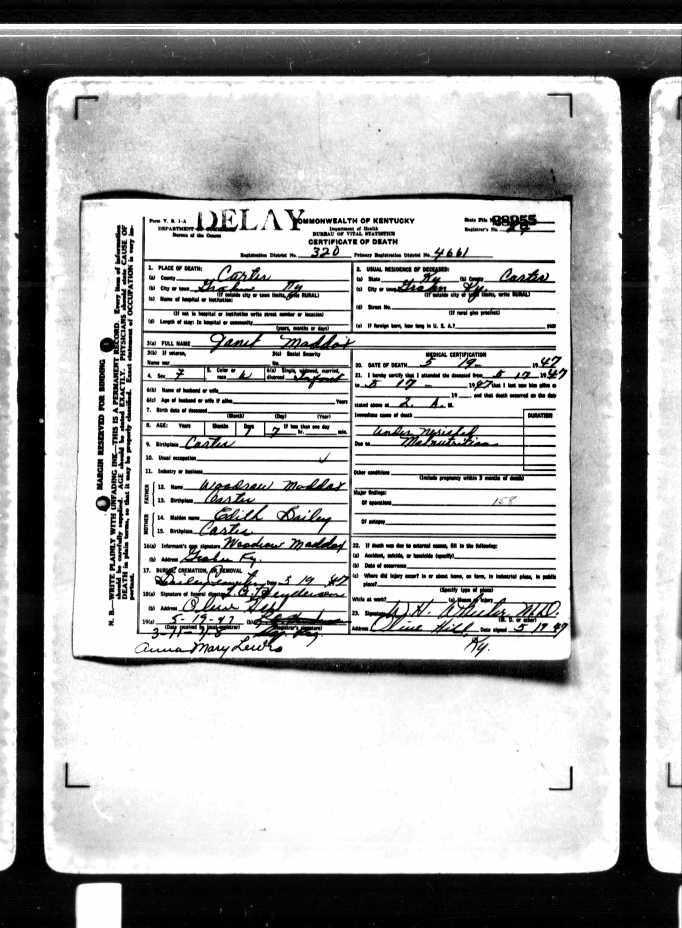 Form V. S. 1-A
DELAY
COMMONWEALTH OF KENTUCKY
DEPARTMENT
Bureau of the Census
Department of Health
BUREAU OF VITAL STATISTICS
CERTIFICATE OF DEATH
State File
Registrar's No.
Registration District No. 320 Primary Registration District No. 4661
MARGIN RESERVED FOR BINDING
N. B.—WRITE PLAINLY WITH UNFADING INK—THIS IS A PERMANENT RECORD. Every item of information should be carefully supplied. AGE should be stated EXACTLY. PHYSICIANS should state CAUSE OF DEATH in plain terms, so that it may be properly classified. Exact statement of OCCUPATION is very important.
1. PLACE OF DEATH:
(a) County Carter
(b) City or town Grahn Ky
(If outside city or town limits, write RURAL)
(c) Name of hospital or institution:
(If not in hospital or institution write street number or location)
(d) Length of stay: In hospital or community
(years, months or days)
2. USUAL RESIDENCE OF DECEASED:
(a) State Ky (b) County Carter
(c) City or town Grahn Ky.
(If outside city or town limits, write RURAL)
(d) Street No.
(If rural give precinct)
(e) If foreign born, how long in U. S. A.? year
3(a) FULL NAME Janet Maddox
3(b) If veteran, 3(c) Social Security
Name war No.
4. Sex 7 5. Color or race W 6(a) Single, widowed, married, divorced Infant
6(b) Name of husband or wife
6(c) Age of husband or wife if alive Years
7. Birth date of deceased
(Month) (Day) (Year)
8. AGE: Years Months Days If less than one day
7 7 hr. min.
9. Birthplace Carter
10. Usual occupation
11. Industry or business
FATHER
12. Name Woodrow Maddox
13. Birthplace Carter
MOTHER
14. Maiden name Edith Bailey
15. Birthplace Carter
16(a) Informant's own signature Woodrow Maddox
(b) Address Grahn Ky.
17. BURIAL, CREMATION, OR REMOVAL
Date 5 19 47
18(a) Signature of funeral director
Henderson
(b) Address Olive Hill
19(a) 5-19-47 (b)
(Date received by local registrar) (Registrar's signature)
Anna Mary Lewis
MEDICAL CERTIFICATION
20. DATE OF DEATH 5 19 1947
21. I hereby certify that I attended the deceased from 5 17 1947
to 5 17 1947 that I last saw him alive on
19 and that death occurred on the date
stated above at 2. A. M.
Immediate cause of death DURATION
Under
Due to Malnutrition
Other conditions
(Include pregnancy within 3 months of death)
Major findings:
Of operations 158
Of autopsy
22. If death was due to external causes, fill in the following:
(a) Accident, suicide, or homicide (specify)
(b) Date of occurrence
(c) Where did injury occur? In or about home, on farm, in industrial place, in public
place?
(Specify type of place)
While at work? (e) Means of injury
23. Signature W. H. Wheeler M.D.
(M. D. or other)
Address Olive Hill, Date signed 5 19 47
Ky.